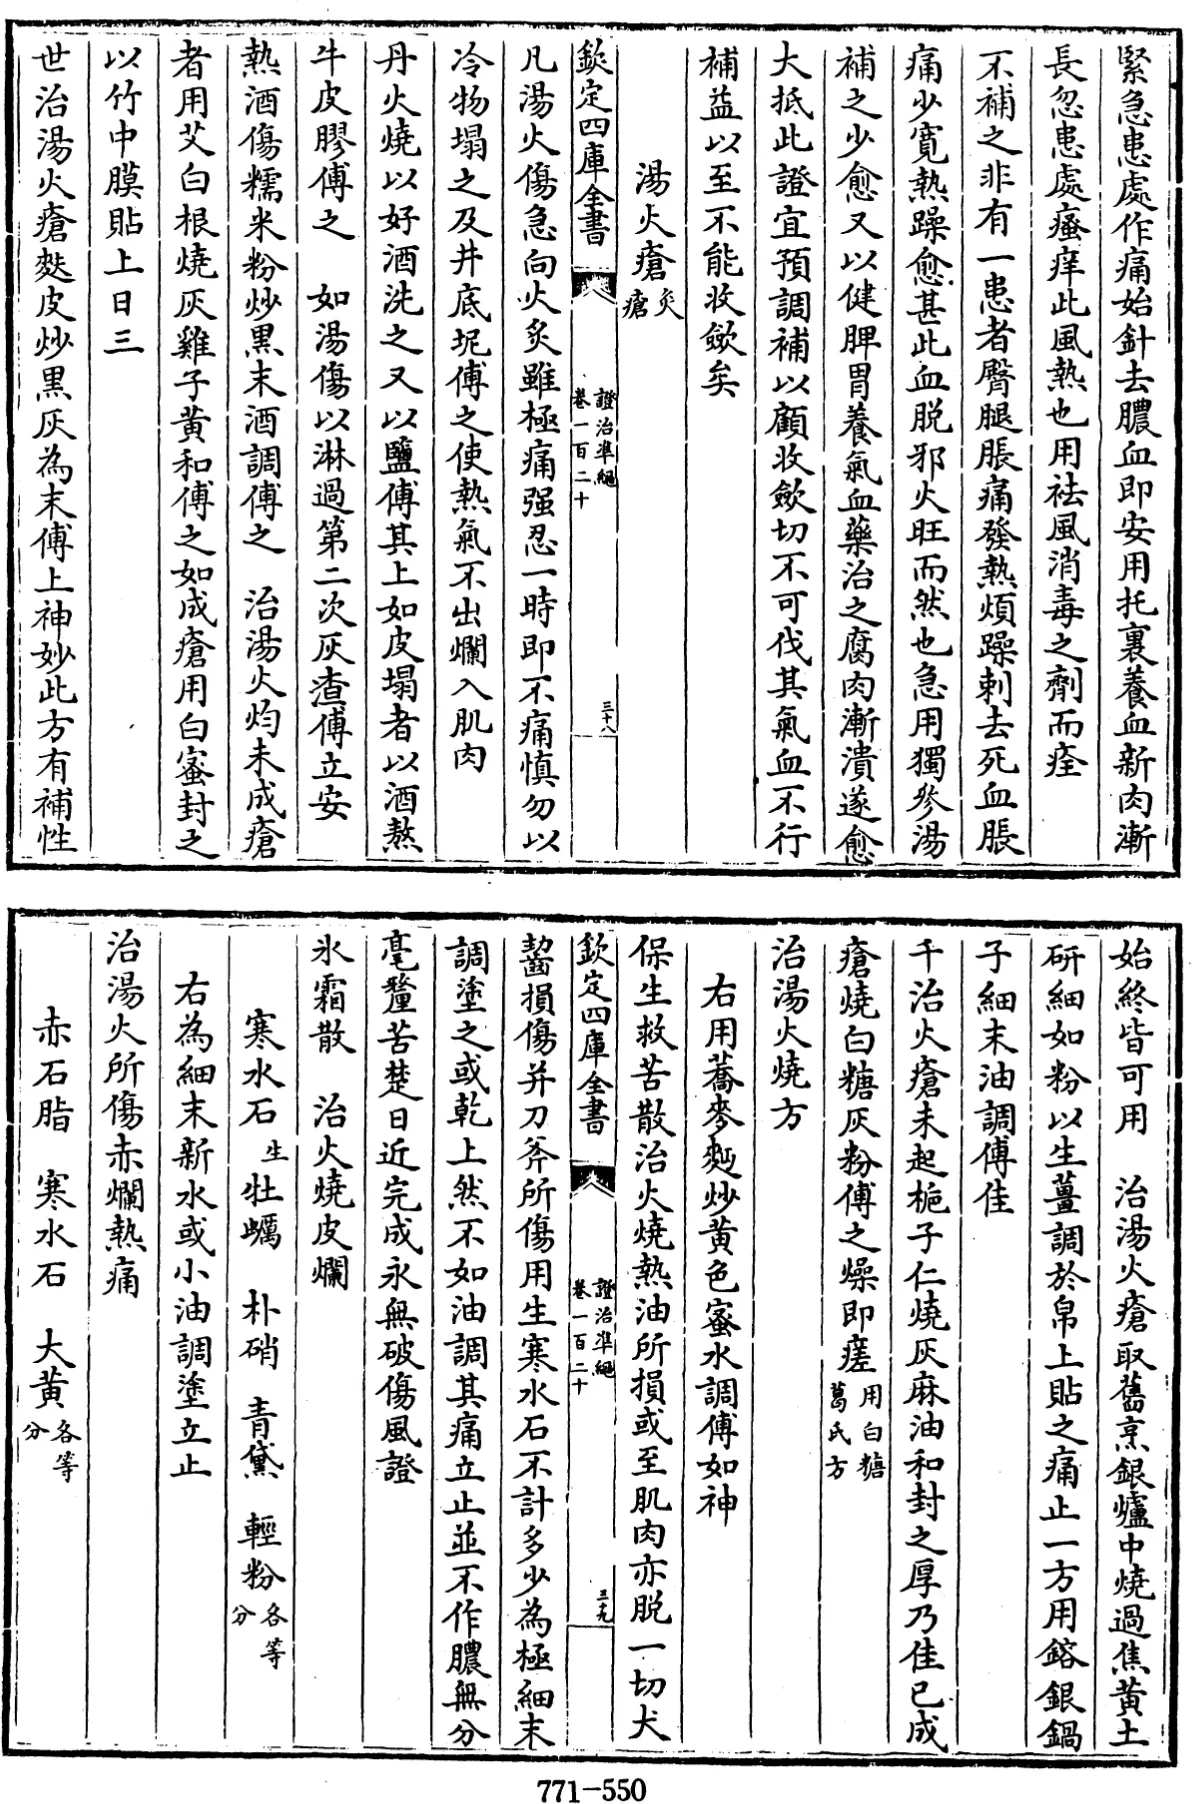 緊急患處作痛始針去膿血即安用托裏養血新肉漸
長忽患處瘙痒此風熱也用祛風消毒之劑而痊
不補之非有一患者臀腿脹痛發熱煩躁刺去死血脹
痛少寛熱躁愈甚此血脱邪火旺而然也急用獨參湯
補之少愈又以健脾胃養氣血藥治之腐肉漸潰遂愈
大抵此證宜預調補以顧收歛切不可伐其氣血不行
補益以至不能收歛矣
湯火瘡灸瘡
欽定四庫全書
證治準繩
卷一百二十
三十八
凡湯火傷急向火炙雖極痛强忍一時即不痛慎勿以
冷物塌之及井底坭傅之使熱氣不出爛入肌肉
丹火燒以好酒洗之又以鹽傅其上如皮塌者以酒熬
牛皮膠傅之 如湯傷以淋過第二次灰渣傅立安
熱酒傷糯米粉炒黒末酒調傅之 治湯火灼未成瘡
者用艾白根燒灰雞子黄和傅之如成瘡用白蜜封之
以竹中膜貼上日三
世治湯火瘡麩皮炒黒灰為末傅上神妙此方有補性
始終皆可用 治湯火瘡取舊烹銀爐中燒過焦黄土
研細如粉以生薑調於帛上貼之痛止一方用鎔銀鍋
子細末油調傅佳
千治火瘡未起梔子仁燒灰麻油和封之厚乃佳已成
瘡燒白糖灰粉傅之燥即瘥用白糖葛氏方
治湯火燒方
右用蕎麥麪炒黄色蜜水調傅如神
保生救苦散治火燒熱油所損或至肌肉亦脱一切犬
欽定四庫全書
證治準繩
卷一百二十
三九
齧損傷并刀斧所傷用生寒水石不計多少為極細末
調塗之或乾上然不如油調其痛立止並不作膿無分
毫釐苦楚日近完成永無破傷風證
氷霜散 治火燒皮爛
寒水石生 牡蠣 朴硝 青黛 輕粉各等分
右為細末新水或小油調塗立止
治湯火所傷赤爛熱痛
赤石脂 寒水石 大黄各等分
771-550